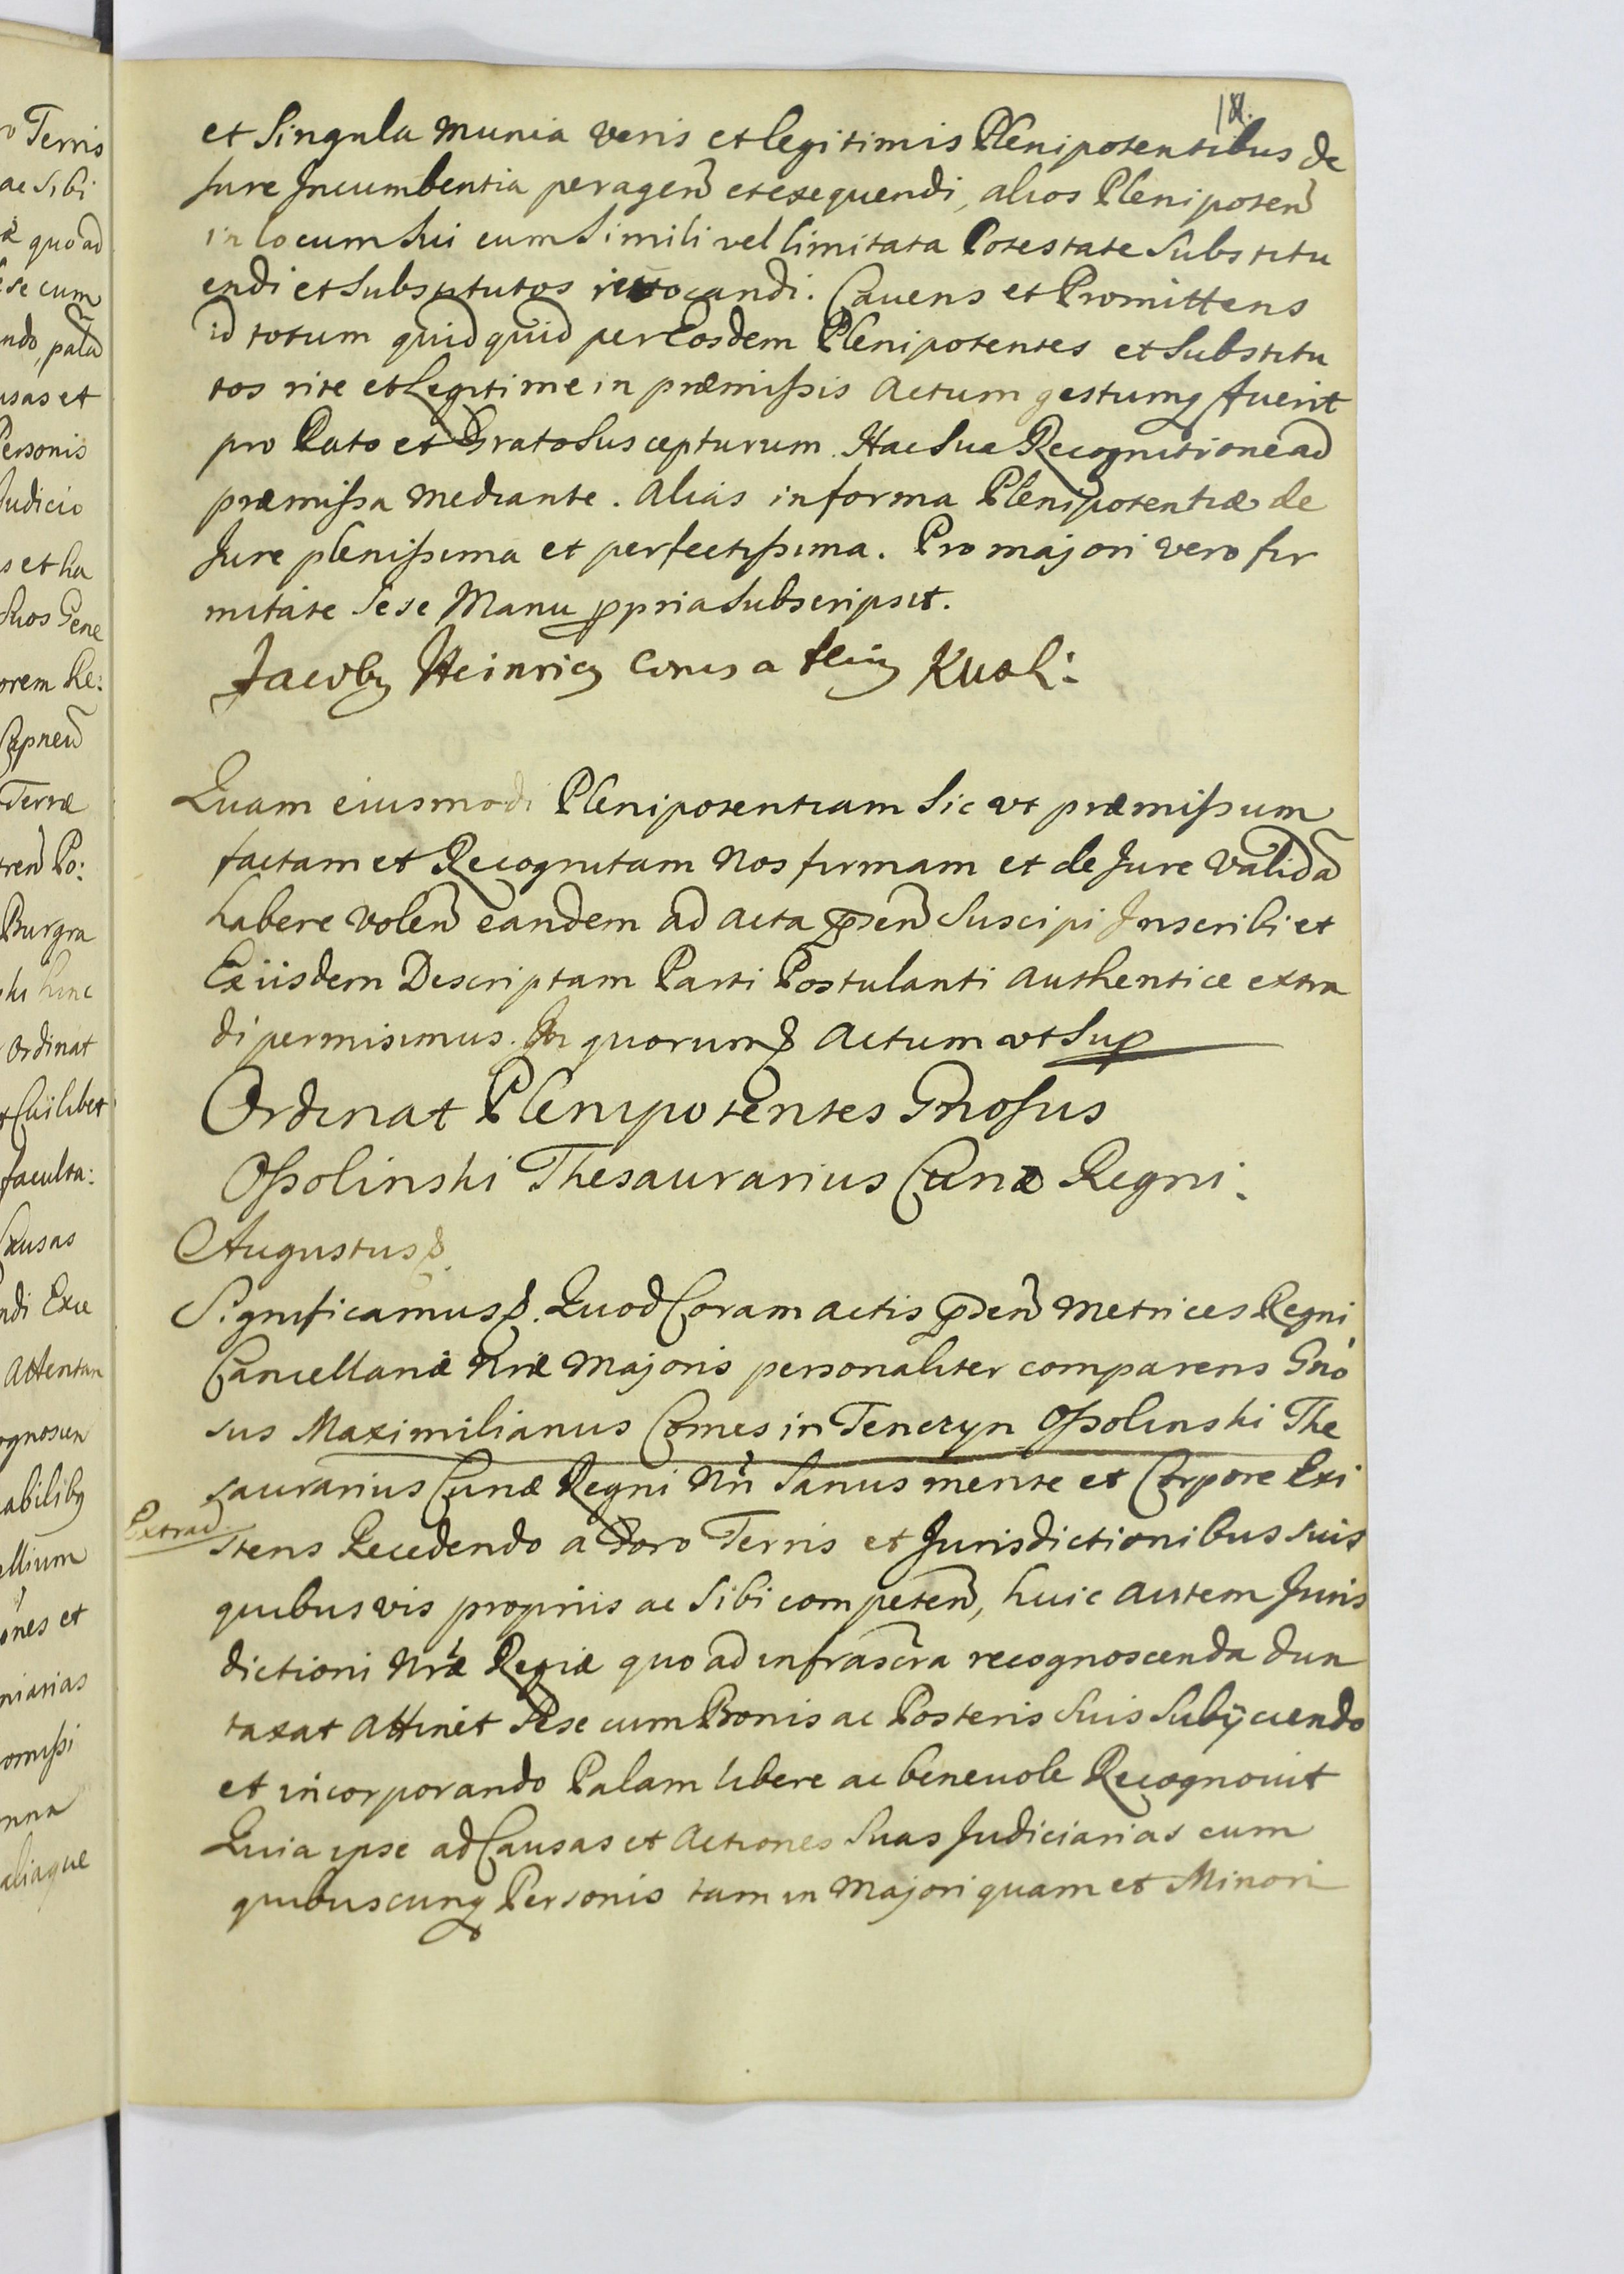 18.
et Singula Munia veris et legitimis Plenipotentibus de
Jure Incumbentia peragen̄ et exequendi, alios Plenipoten̄
in locum Sui cum Simili vel limitata Potestate Substitu
endi et Substitutos revocandi. Cavens et Promittens
id totum quidquid per Eosdem Plenipotentes et Substitu
tos rite et Legitime in præmissis Actum gestumq fuerit
pro Rato et Grato Suscepturum. Hac Sua Recognitione ad
præmissa mediante. Alias in forma Plenipotentiæ de
Jure plenissima et perfectissima. Pro majori vero fir
mitate Sese Manu ppria Subscripsit.
Jacobq Heinricq Comes a
Quam eiusmodi Plenipotentiam Sic vt præmissum
factam et Recognitam Nos firmam et de Jure validā
habere volen̄ eandem ad Acta pn̄sen̄ Suscipi Inscribi et
Ex iisdem Descriptam Parti Postulanti Authentice extra
di permisimus. In quorum & Actum vt Sup
Ordinat Plenipotentes Gn̄osus
Ossolinski Thesaurarius Curiæ Regni.
Augustus &.
Significamus &. Quod Coram Actis pn̄sen̄ Metrices Regni
Cancellariæ Nræ Majoris personaliter comparens Gn̄o
sus Maximilianus Comes in Tenczyn Ossolinski The
saurarius Curiæ Regni Nri Sanus mente et Corpore Exi
Extrad.
stens Recedendo a Foro Terris et Jurisdictionibus suis
quibusvis propriis ac Sibi competen̄, huic autem Juris
dictioni Nræ Regiæ quo ad infrascra recognoscenda dun
taxat Attinet Sese cum Bonis ac Posteris Suis Subijciendo
et incorporando Palam libere ac benevole Recognovit
Quia ipse ad Causas et Actiones Suas Judiciarias cum
quibuscunq Personis tam in Majori quam et Minori